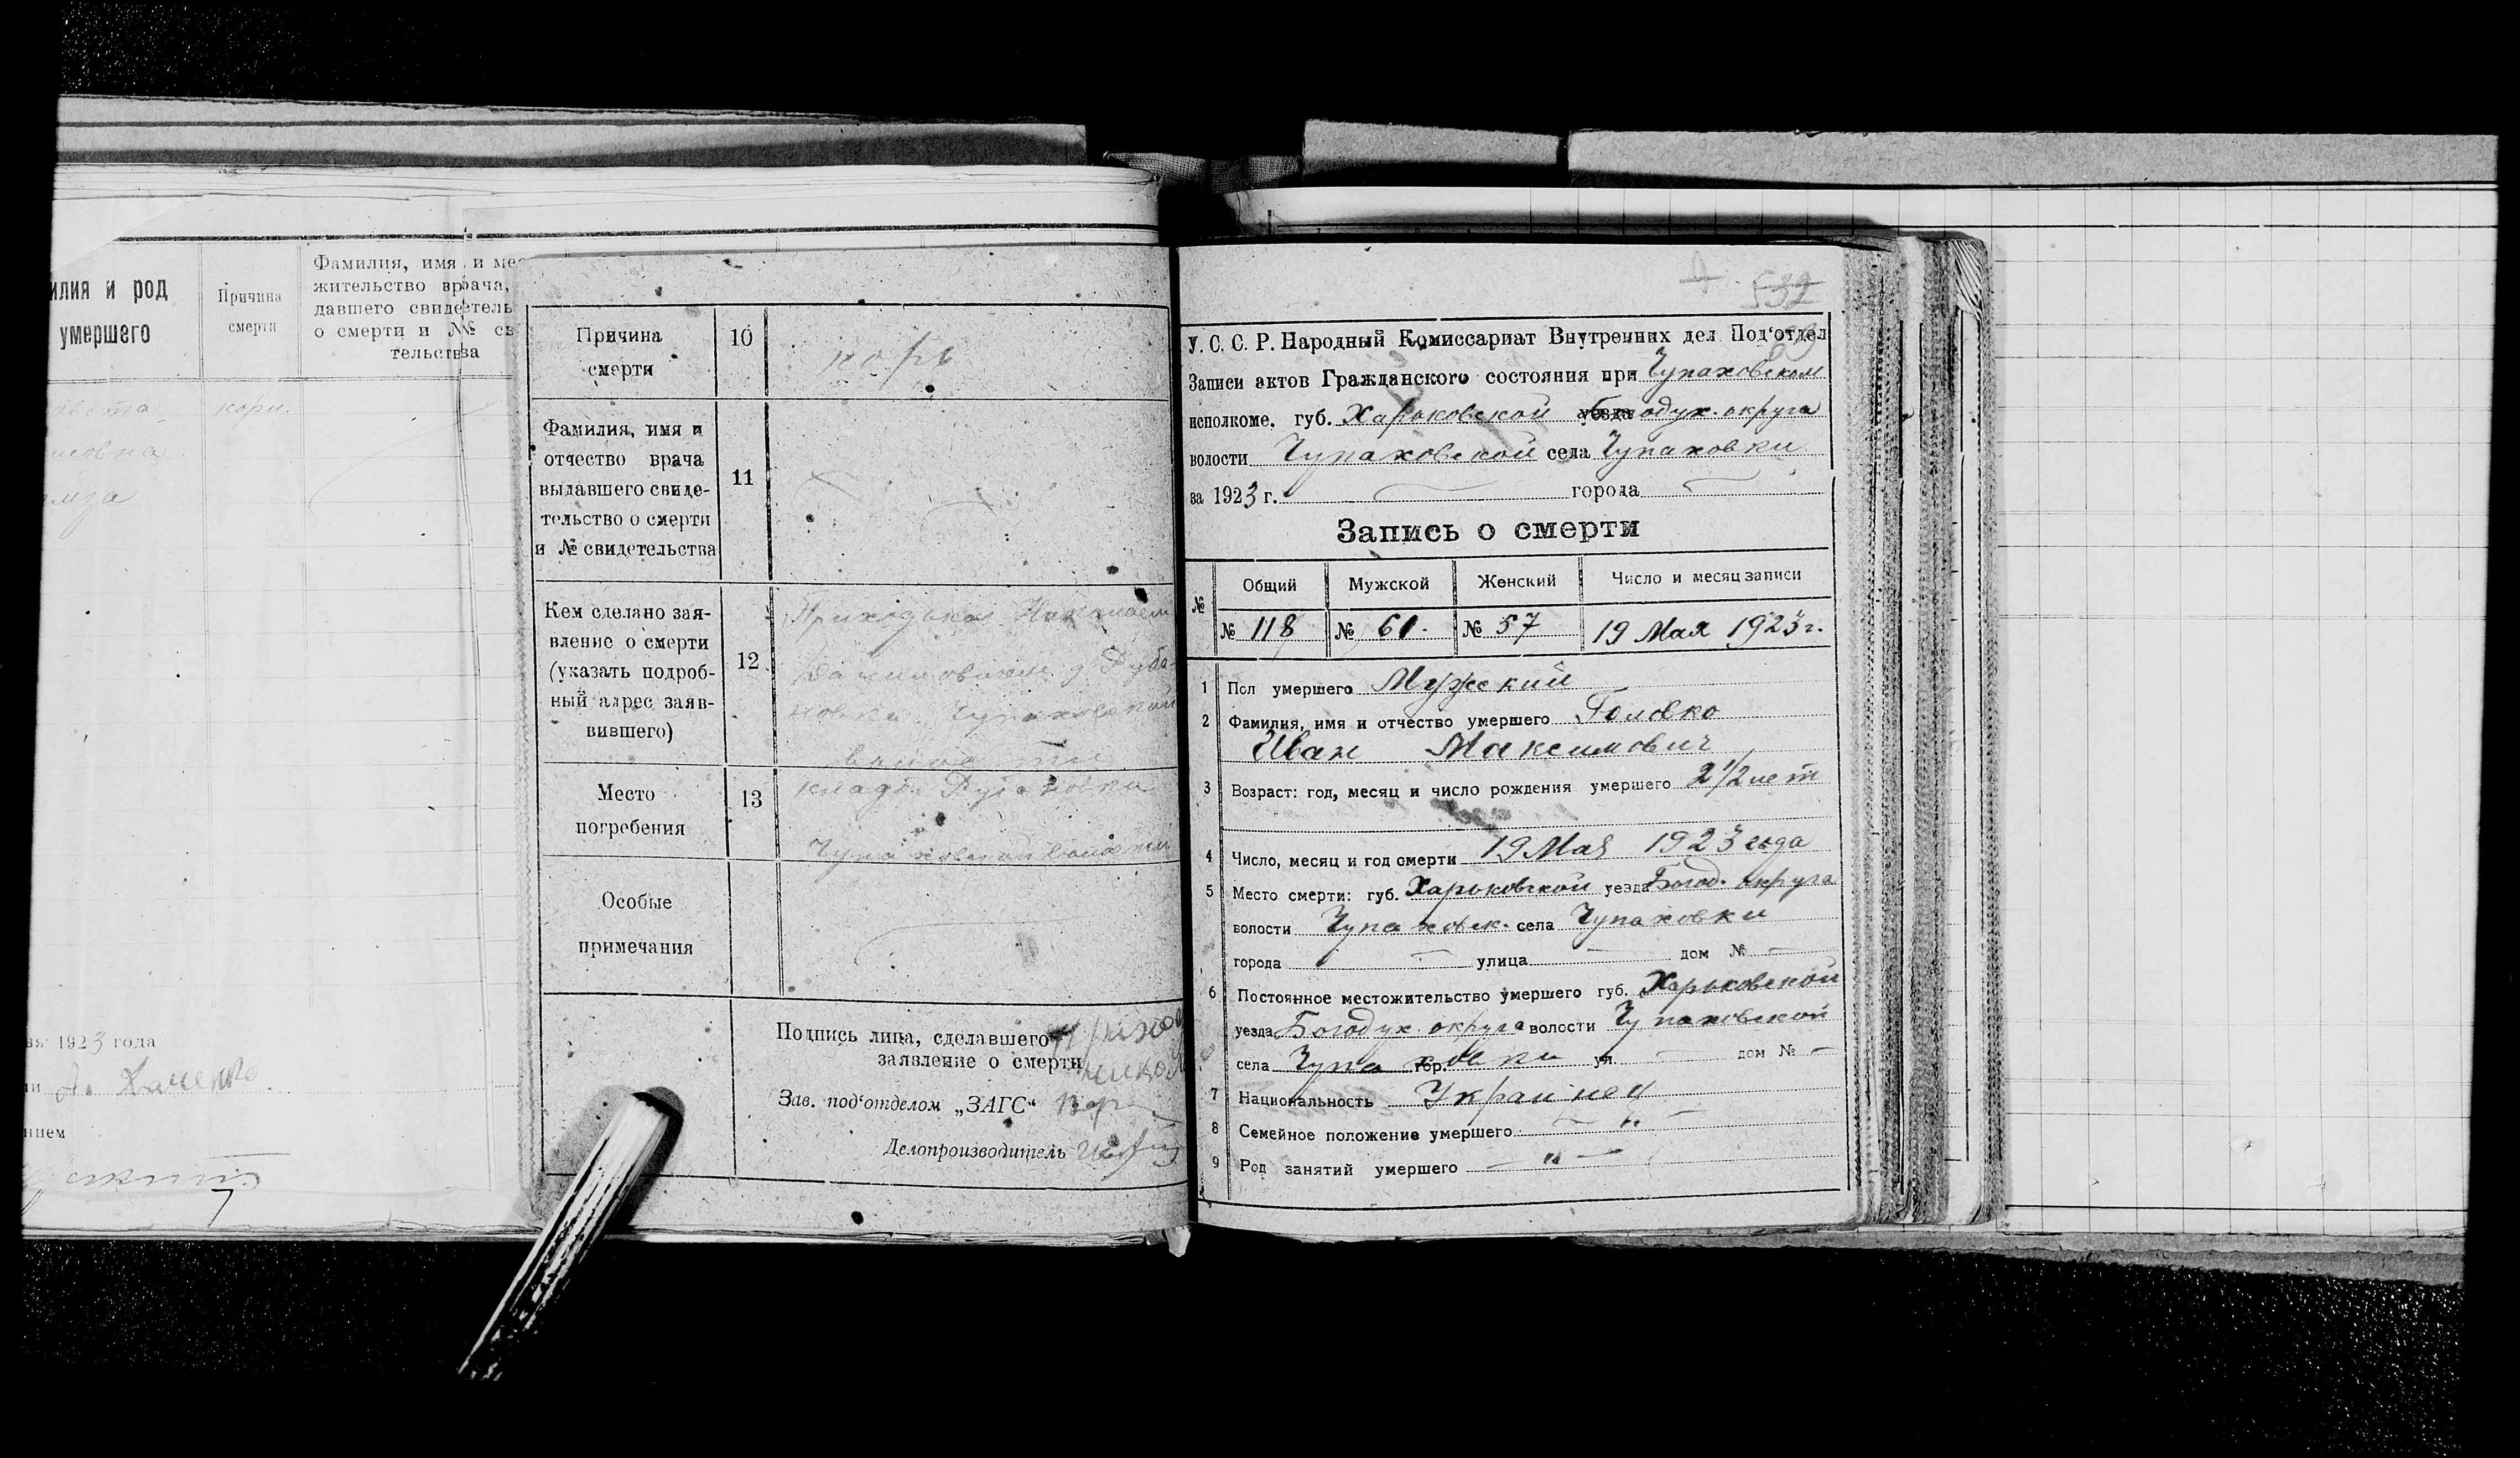 илия и род
умершего
Причина
смерти
Фамилия, имя и мес
жительство врача,
давшего свидетель
о смерти и № св
тельства
кори.
1923 года
нием
Причина
смерти
10
корь
Фамилия, имя и
отчество врача
выдавшего свиде-
тельство о смерти
и № свидетельства
11
Кем сделано зая-
вление о смерти
(указать подроб-
ный адрес заяв-
вившего)
12
Чупаховской
волости
Место
погребения
13
кладб.
Чупаховской волости
Особые
примечания
Подпись лица, сделавшего
заявление о смерти
Зав. под'отделом „ЗАГС“
Делопроизводитель
532
У. С. С. Р. Народный Комиссариат Внутренних дел Под'отдел
Записи актов Гражданского состояния при Чупаховском
исполкоме. губ. Харьковской уезда Богодух. округа
волости Чупаховской села Чупаховки
за 1923 г. города
Запись о смерти
№ Общий Мужской Женский Число и месяц записи
№ 118 № 61. № 57 19 Мая 1923 г.
1 Пол умершего Мужский
2 Фамилия, имя и отчество умершего Головко
Иван Максимович
3 Возраст: год, месяц и число рождения умершего 2 1/2 лет
4 Число, месяц и год смерти 19 Мая 1923 года
5 Место смерти: губ. Харьковской уезда Богод. округа
волости Чупаховск. села Чупаховки
города улица дом №
6 Постоянное местожительство умершего губ. Харьковской
уезда Богодух. округа волости Чупаховской
села Чупаховки гор. ул. дом №
7 Национальность Украинец
8 Семейное положение умершего "
9 Род занятий умершего "